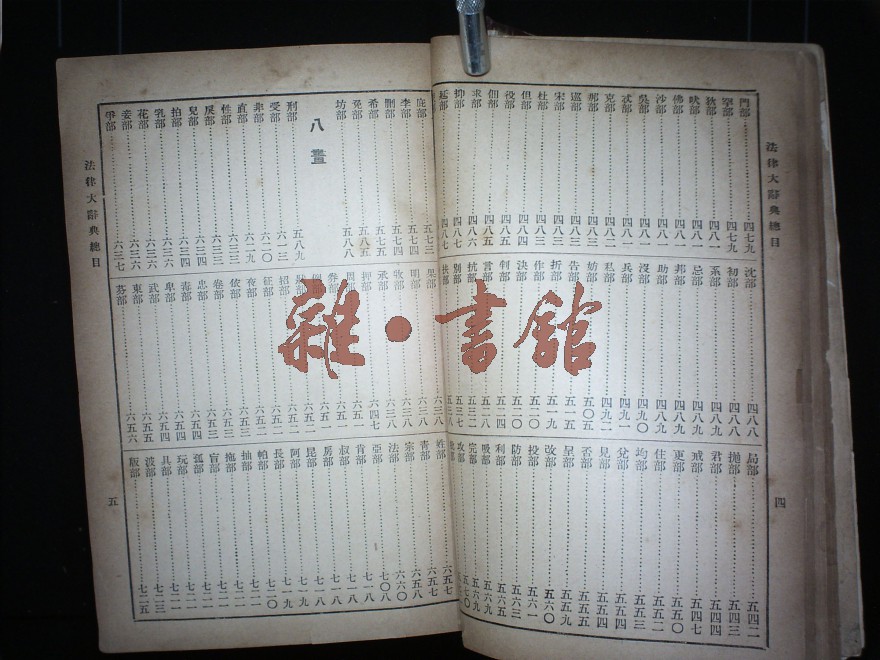 法律大辭典總目
四
門部 四七九
宰部 四七九
狄部 四八一
吠部 四八一
佛部 四八一
沙部 四八一
吳部 四八一
忒部 四八一
克部 四八二
那部 四八三
巡部 四八三
宋部 四八三
杜部 四八三
但部 四八四
役部 四八四
佃部 四八五
求部 四八六
抑部 四八七
延部 四八七
沈部 四八八
初部 四八八
系部 四八九
忌部 四八九
邦部 四八九
助部 四八九
沒部 四九〇
兵部 四九一
私部 四九二
妨部 五〇五
告部 五一五
折部 五一九
作部 五二〇
決部 五二〇
判部 五二四
言部 五二八
抗部 五三二
別部 五三七
扶部 五三八
局部 五四二
拋部 五四三
君部 五四四
戒部 五四七
更部 五五〇
住部 五五二
均部 五五三
兌部 五五四
見部 五五五
否部 五五五
呈部 五五九
改部 五六〇
投部 五六一
防部 五六三
利部 五六五
吸部 五六九
完部 五七〇
攻部 五七〇
庇部 五七三
李部 五七四
刪部 五七四
希部 五七五
免部 五八五
坊部 五八八
八畫
刑部 五八九
受部 六一三
非部 六二〇
直部 六二九
性部 六三三
屍部 六三三
兒部 六三四
拍部 六三四
乳部 六三六
花部 六三六
妾部 六三六
爭部 六三七
果部 六三八
明部 六三八
牧部 六三八
承部 六四七
押部 六五一
招部 六五二
征部 六五二
夜部 六五三
依部 六五三
卷部 六五三
忠部 六五四
毒部 六五四
卑部 六五四
武部 六五五
東部 六五五
芬部 六五六
姓部 六五七
青部 六五七
宗部 六五八
法部 六六〇
亞部 七〇八
肯部 七一八
叔部 七一八
房部 七一八
昆部 七一八
阿部 七一九
長部 七一九
帕部 七二〇
抽部 七二一
拖部 七二一
盲部 七二一
弧部 七二一
玩部 七二一
具部 七二一
波部 七二三
販部 七二五
法律大辭典總目
五
雜·書館